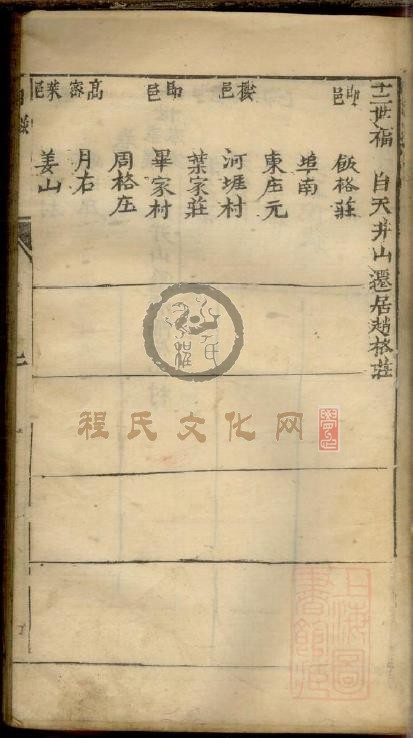 十二世福 自天井山遷居趙格莊
即邑 飯格莊
埠南
東庄元
棲邑 河堐村
葉家莊
即邑 畢家村
周格庄
高家 月右
萊邑 姜山
程氏文化网
上海圖書館藏